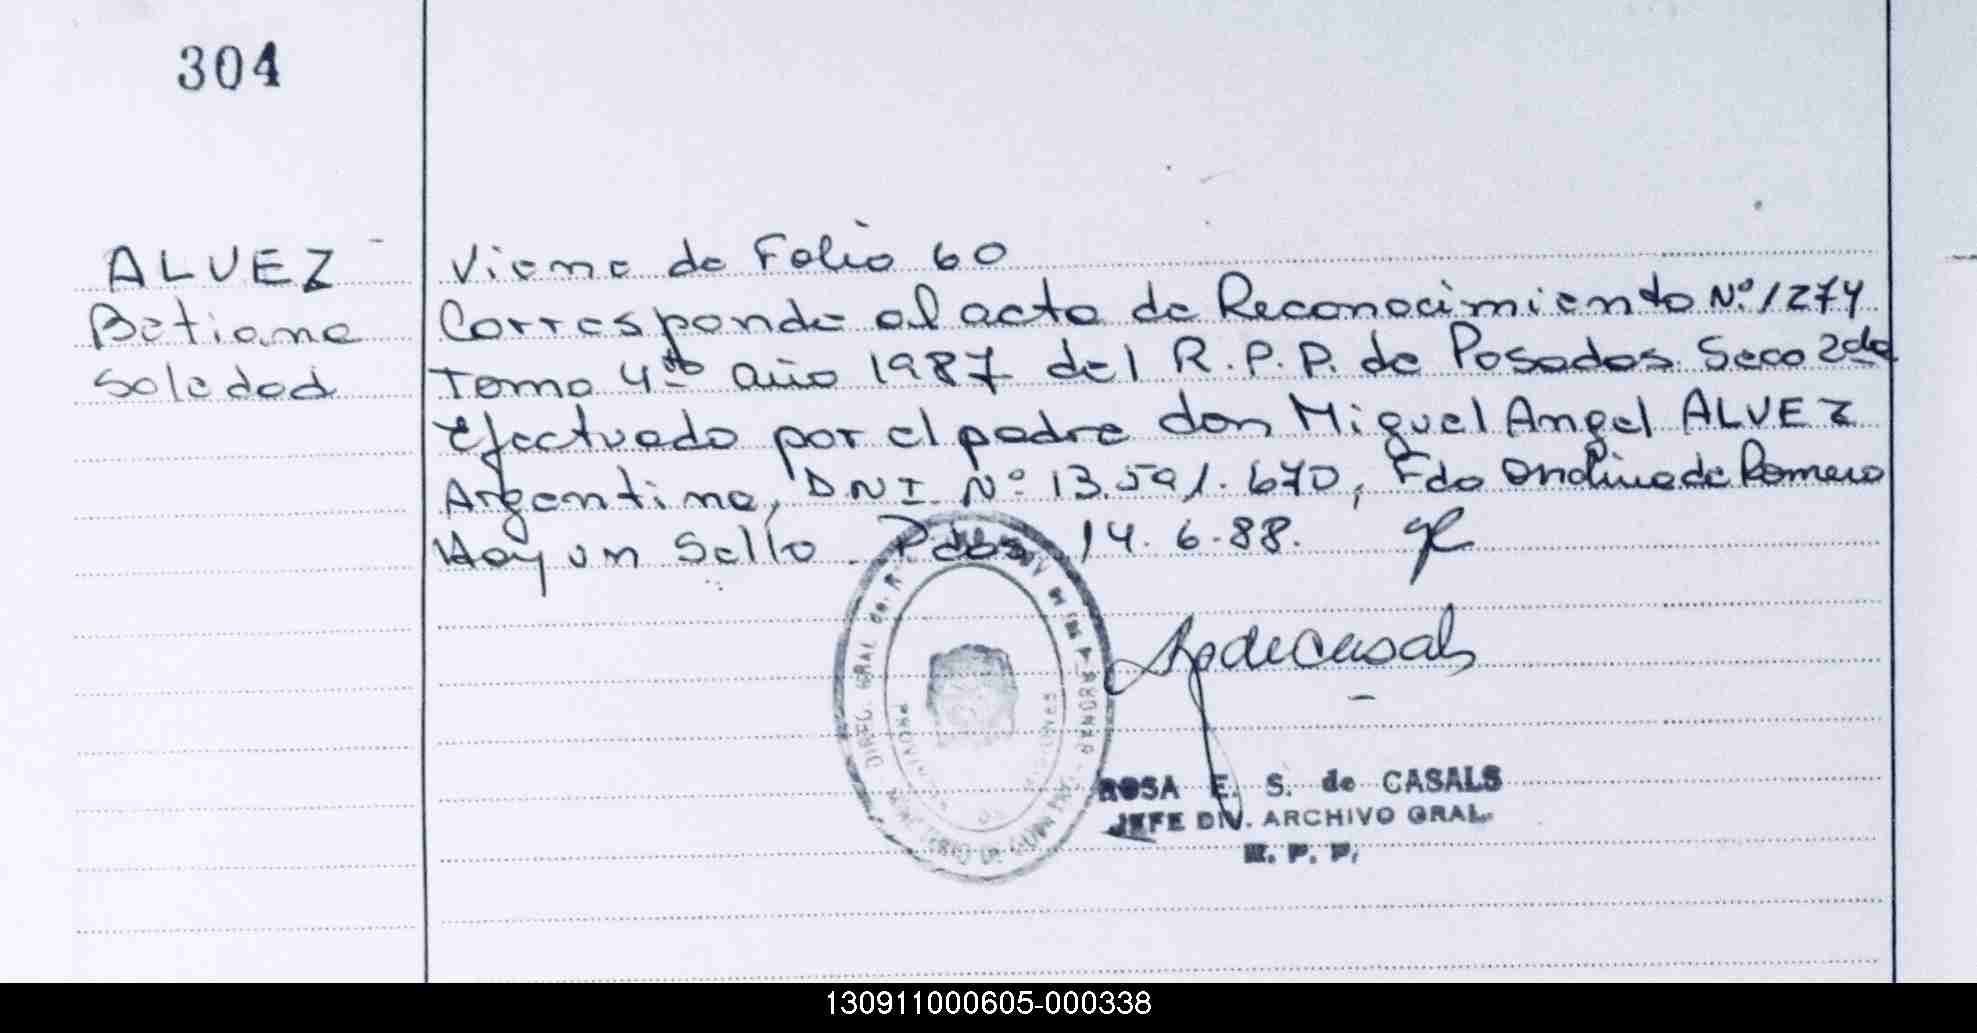 304
ALVEZ
Betiana
Soledad
Viene de Folio 60
Corresponde al acta de Reconocimiento Nº 1274
Tomo 4to año 1987 del R.P.P. de Posadas Secc 2da
Efectuado por el padre don Miguel Angel ALVEZ
Argentino, DNI Nº 13.591.670, Fdo Ondina de Romero
Hay un Sello. Pdas 14.6.88.
DIREC. GRAL de
PROVINCIA
MISIONES
ROSA E. S. de CASALS
JEFE DIV. ARCHIVO GRAL.
R. P. P.
130911000605-000338